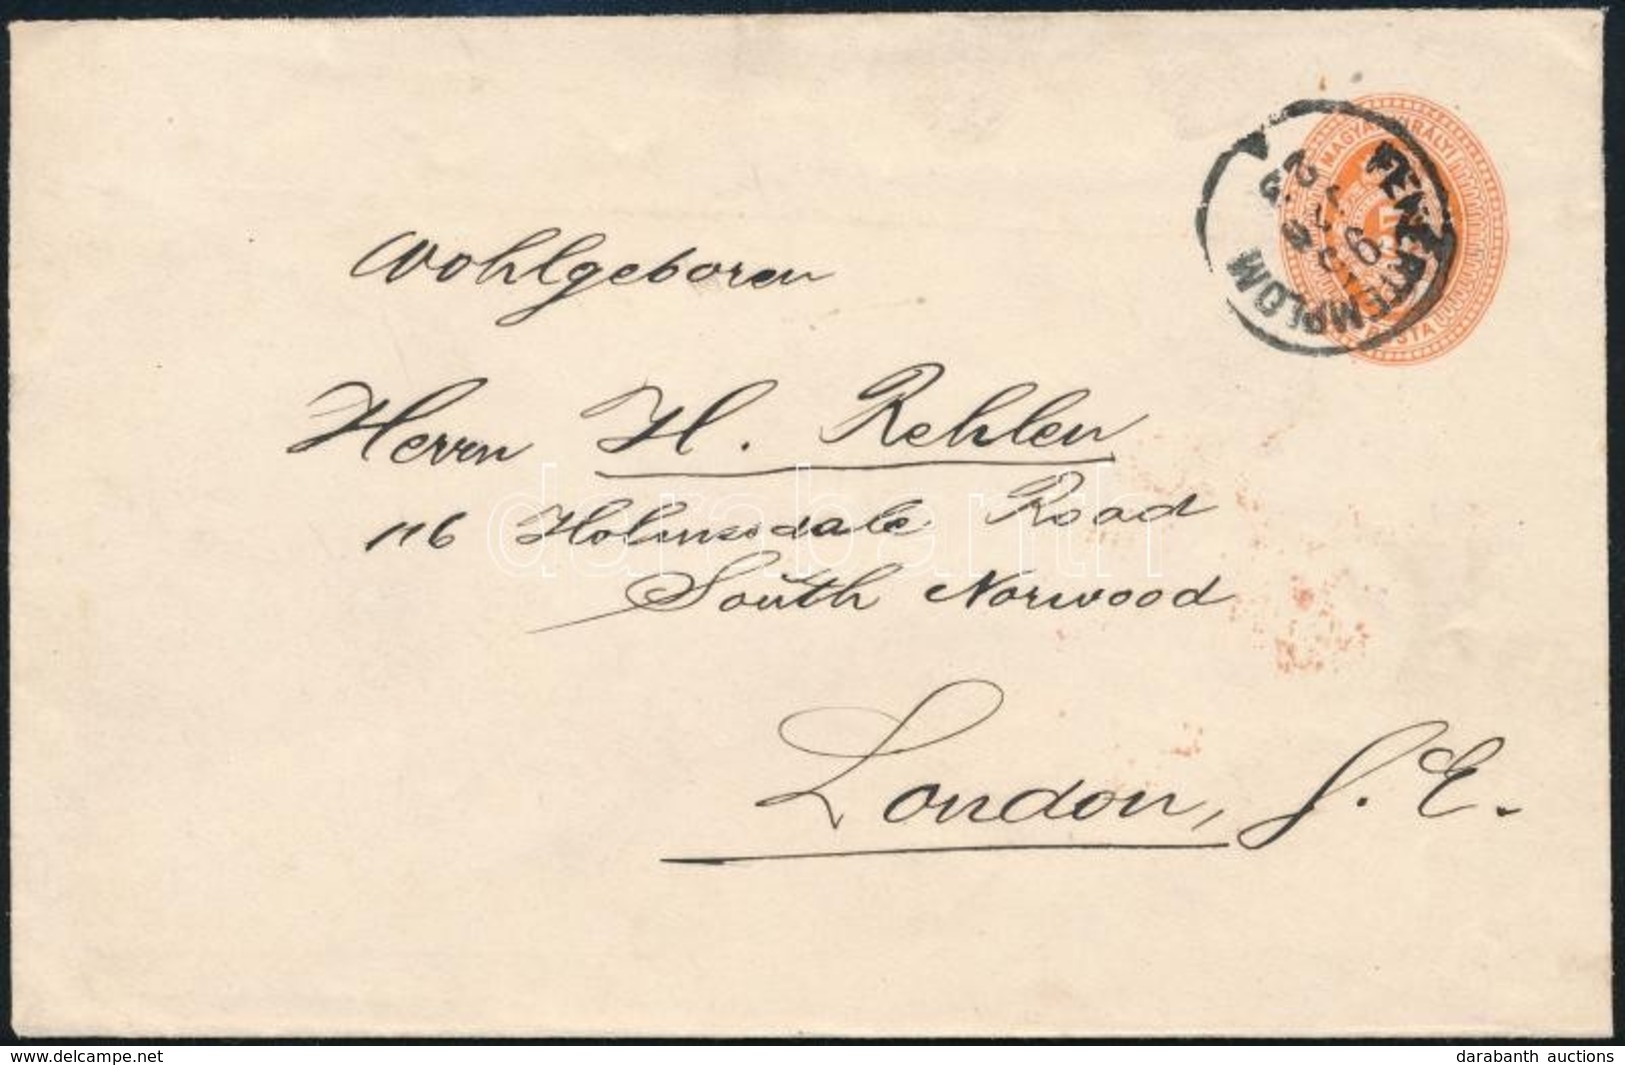 MAGYAR KIRÁLYI
POSTA
FEHÉRTEMPLOM
Wohlgeboren
Herrn H. Rehlen
116 Holmesdale Road
South Norwood
London, S.E.
darabanth
www.delcampe.net
darabanth auctions